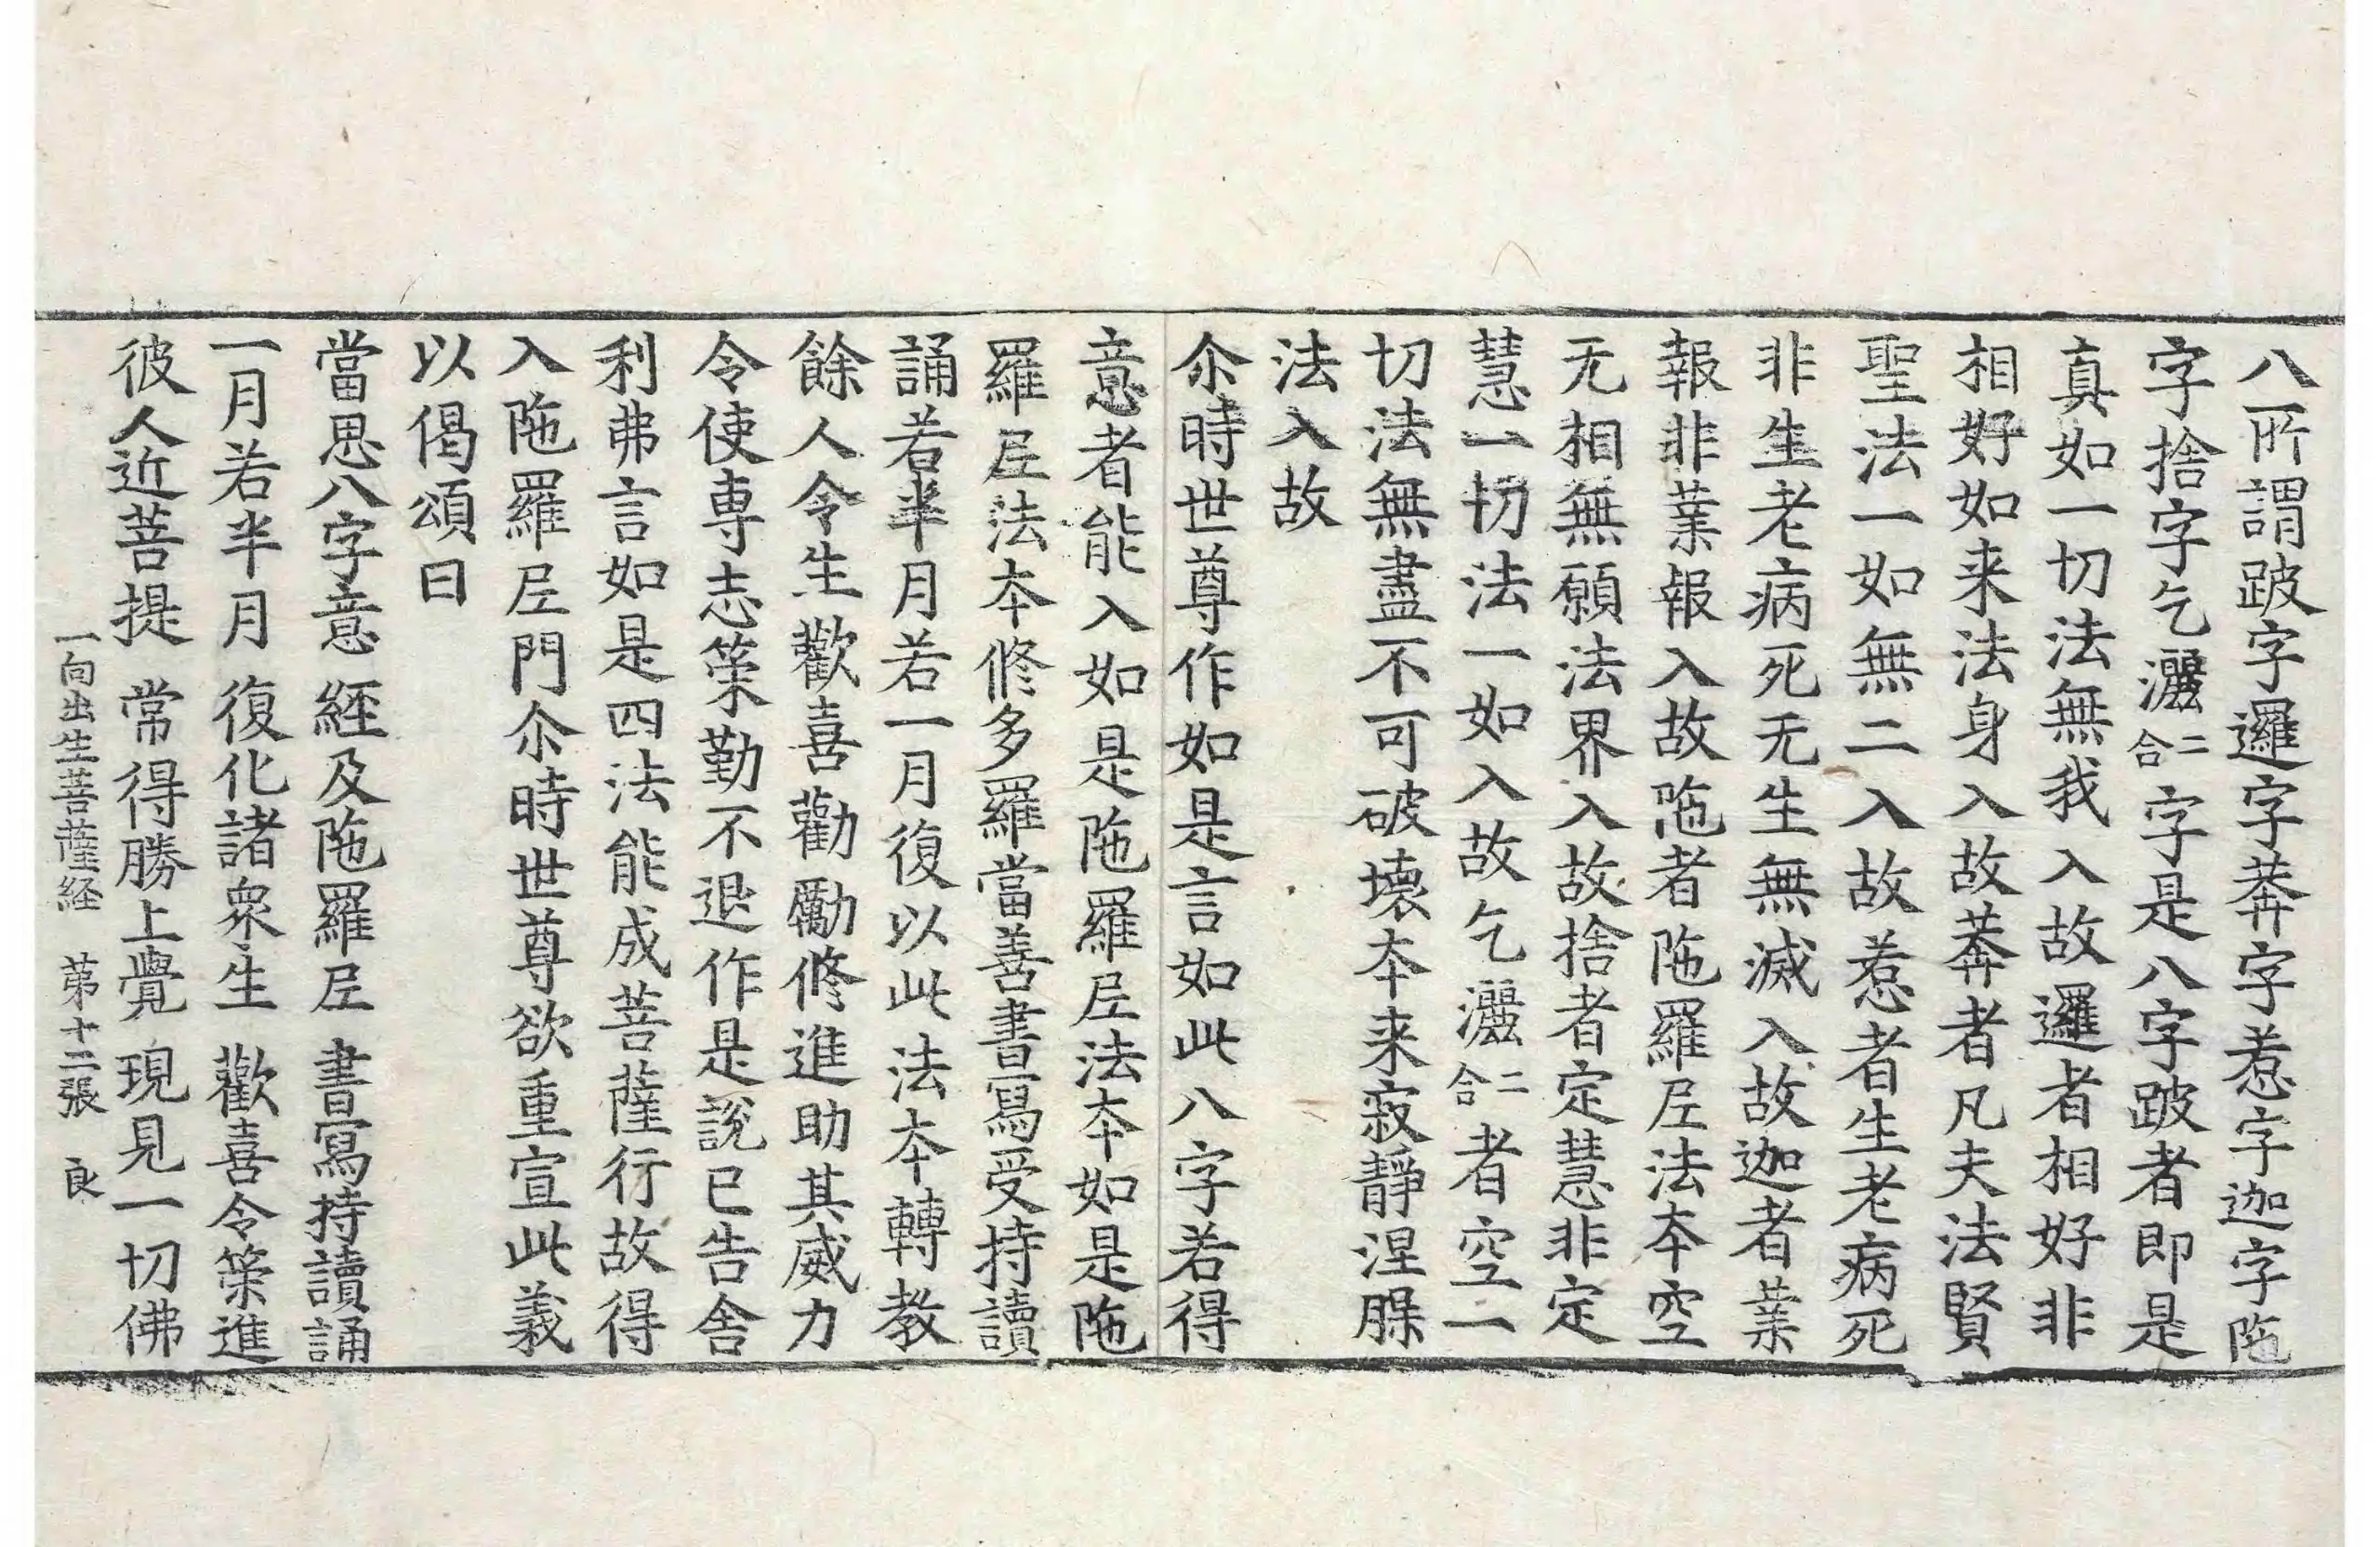 八所謂跛字邏字莾字惹字迦字陁
字捨字乞灑二合字是八字跛者即是
真如一切法無我入故邏者相好非
相好如来法身入故莾者凡夫法賢
聖法一如無二入故惹者生老病死
非生老病死无生無滅入故迦者業
報非業報入故陁者陁羅尼法夲空
无相無願法界入故捨者定慧非定
慧一切法一如入故乞灑二合者空一
切法無盡不可破壊夲来寂靜涅槃
法入故
尒時世尊作如是言如此八字若得
意者能入如是陁羅尼法夲如是陁
羅尼法夲修多羅當善書寫受持讀
誦若半月若一月復以此法夲轉教
餘人令生歡喜勸勵修進助其威力
令使専志策勤不退作是說已告舎
利弗言如是四法能成菩薩行故得
入陁羅尼門尒時世尊欲重宣此義
以偈頌曰
當思八字意 經及陁羅尼 書寫持讀誦
一月若半月 復化諸衆生 歡喜令策進
彼人近菩提 常得勝上覺 現見一切佛
一向出生菩薩経 第十二張 良